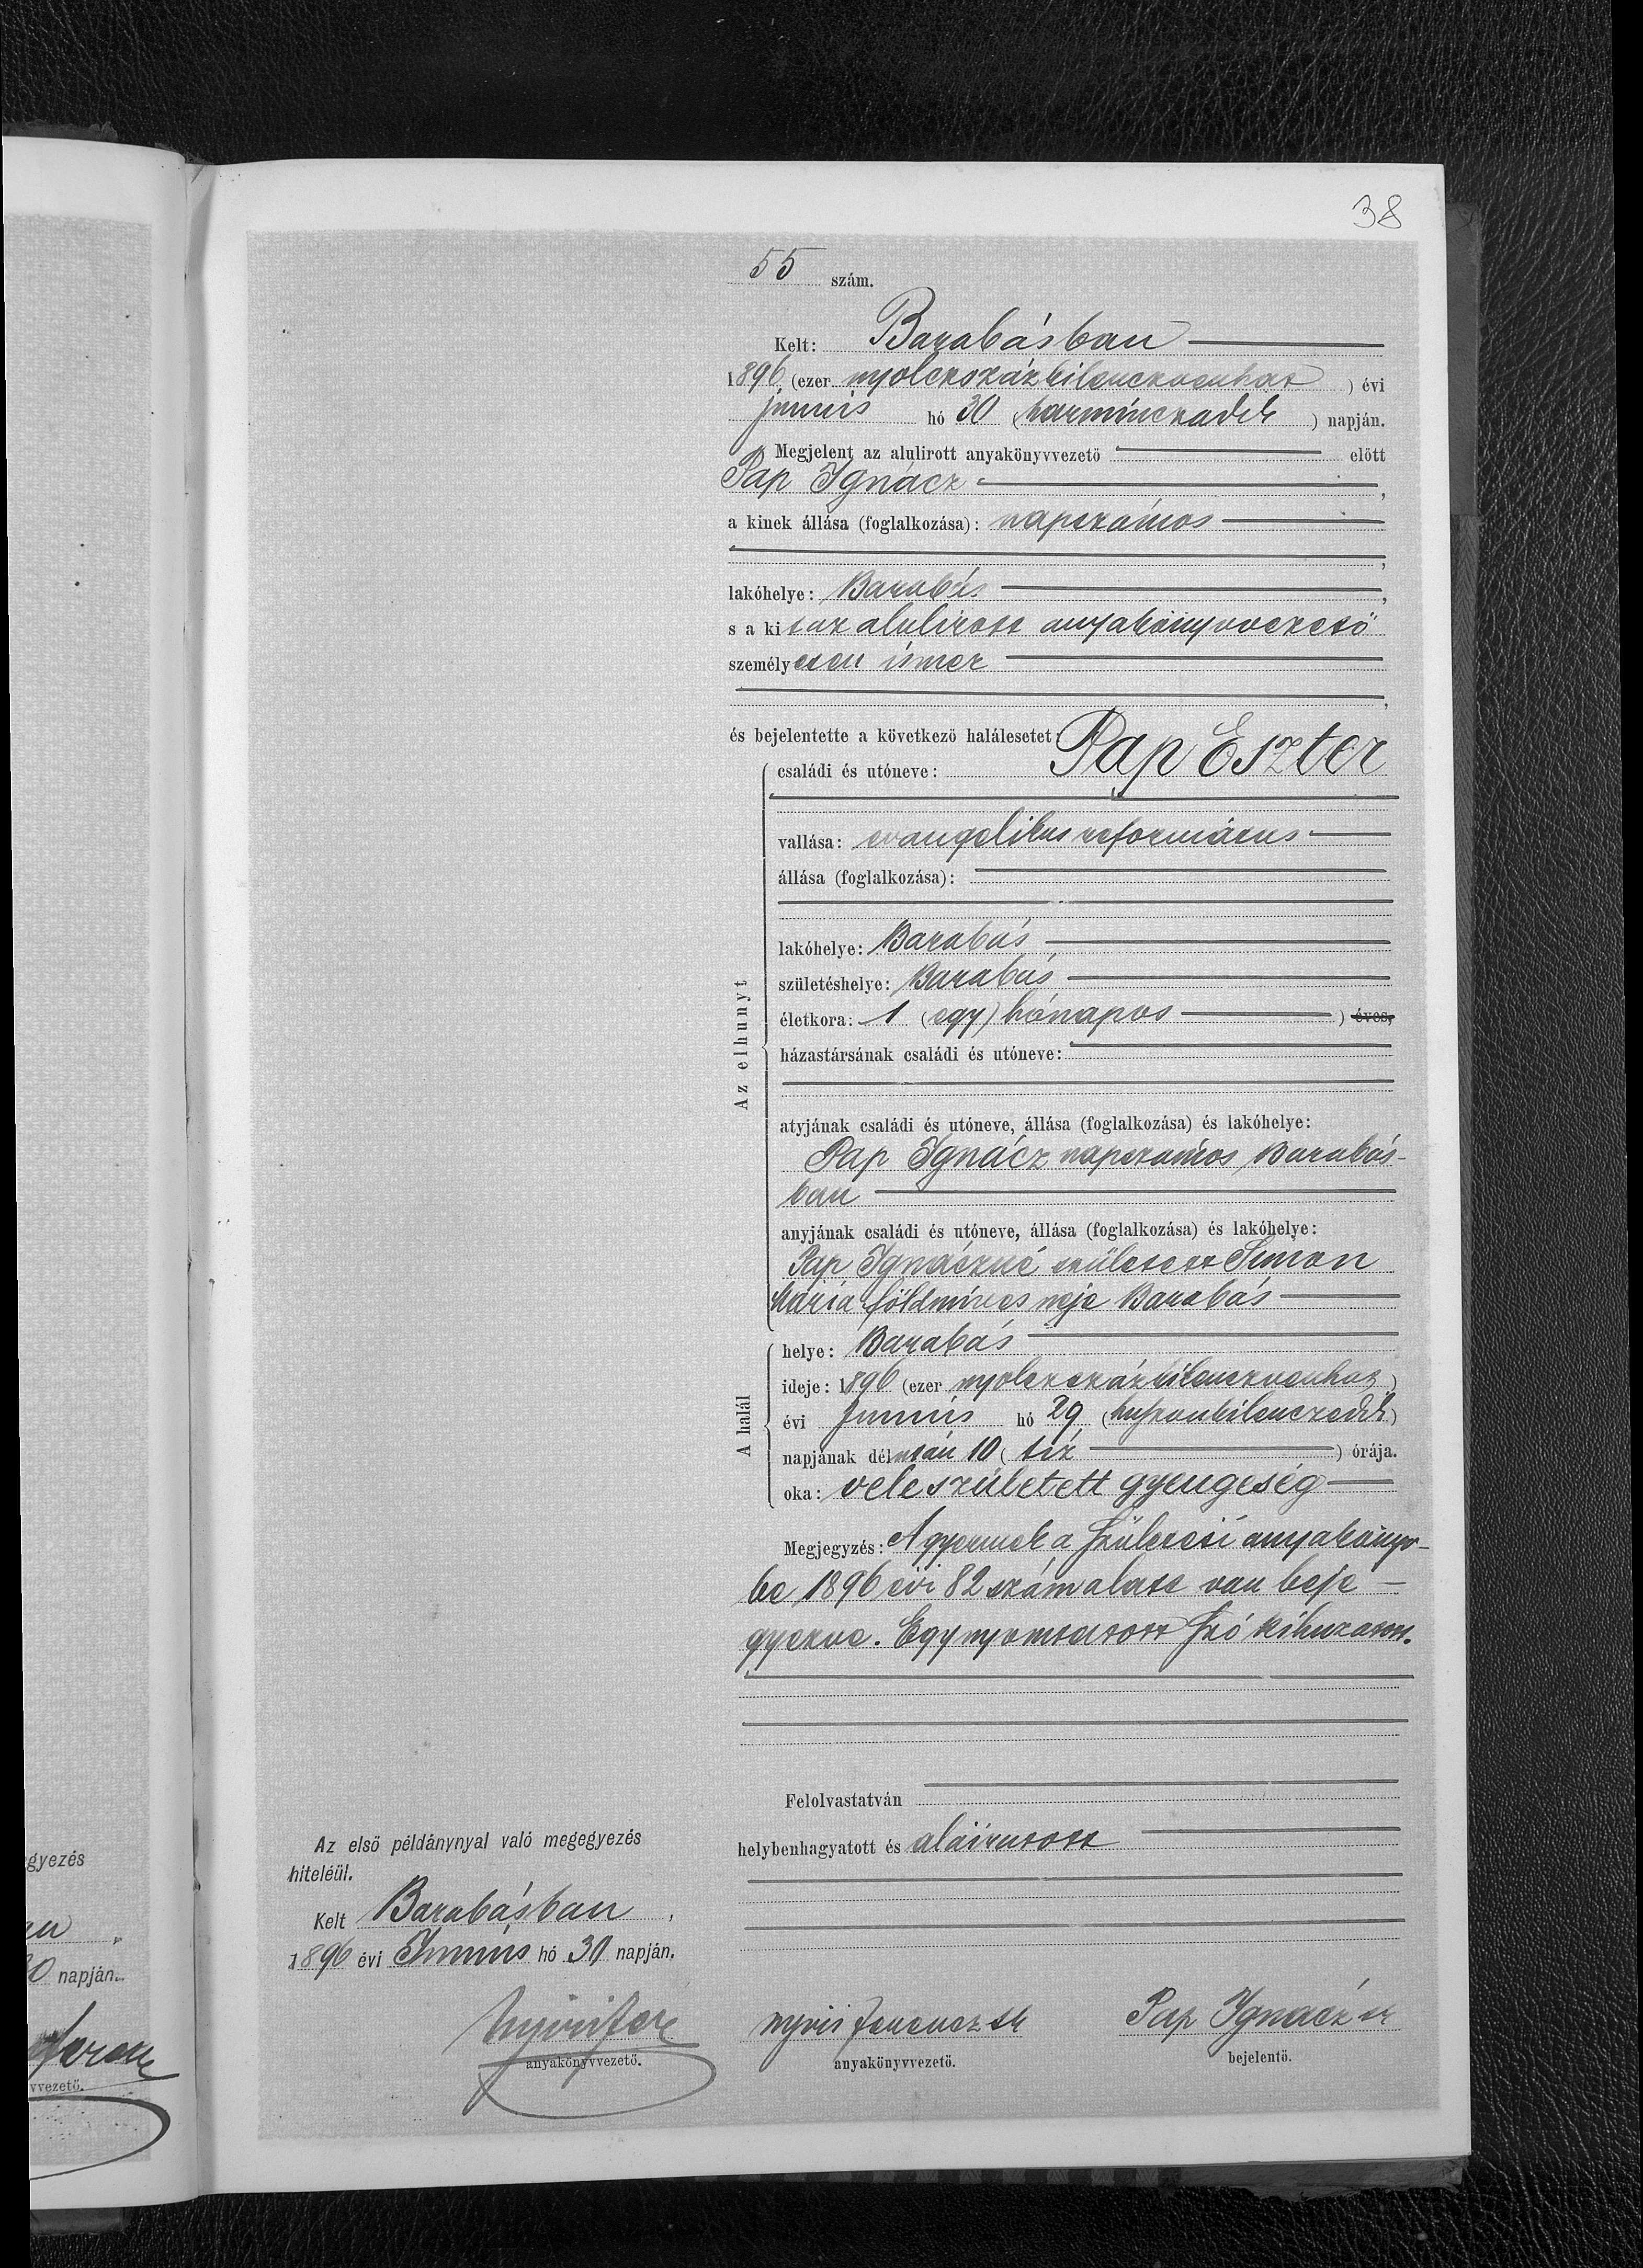 38
55 szám.
Kelt: Barabásban
1896 (ezer nyolczszázkilenczvenhat) évi
junius hó 30 (harminczadik) napján.
Megjelent az alulirott anyakönyvvezető előtt
Pap Ignácz,
a kinek állása (foglalkozása): napszámos
lakóhelye: Barabás,
s a kit az alulirott anyakönyvvezető
személyesen ismer
és bejelentette a következő halálesetet:
Az elhunyt
családi és utóneve: Pap Eszter
vallása: evangelikus református
állása (foglalkozása):
lakóhelye: Barabás
születéshelye: Barabás
életkora: 1 (egy) hónapos ) éves,
házastársának családi és utóneve:
atyjának családi és utóneve, állása (foglalkozása) és lakóhelye:
Pap Ignácz napszámos Barabás-
ban
anyjának családi és utóneve, állása (foglalkozása) és lakóhelye:
Pap Ignáczné született Simon
Mária földmíves neje Barabás
A halál
helye: Barabás
ideje: 1896 (ezer nyolczszázkilenczvenhat)
évi junius hó 29 (huszonkilenczedik)
napjának délután 10 (tíz) órája.
oka: veleszületett gyengeség
Megjegyzés: A gyermek a születési anyakönyv-
be 1896 évi 82 szám alatt van beje-
gyezve. Egy nyomtatott szó kihuzatott.
Felolvastatván
helybenhagyatott és aláiratott
Az első példánynyal való megegyezés
hiteléül.
Kelt Barabásban,
1896 évi Junius hó 30 napján.
anyakönyvvezető.
Nyiri Ferencz sk
anyakönyvvezető.
Pap Ignácz sk
bejelentő.
gyezés
napján.
vvezető.